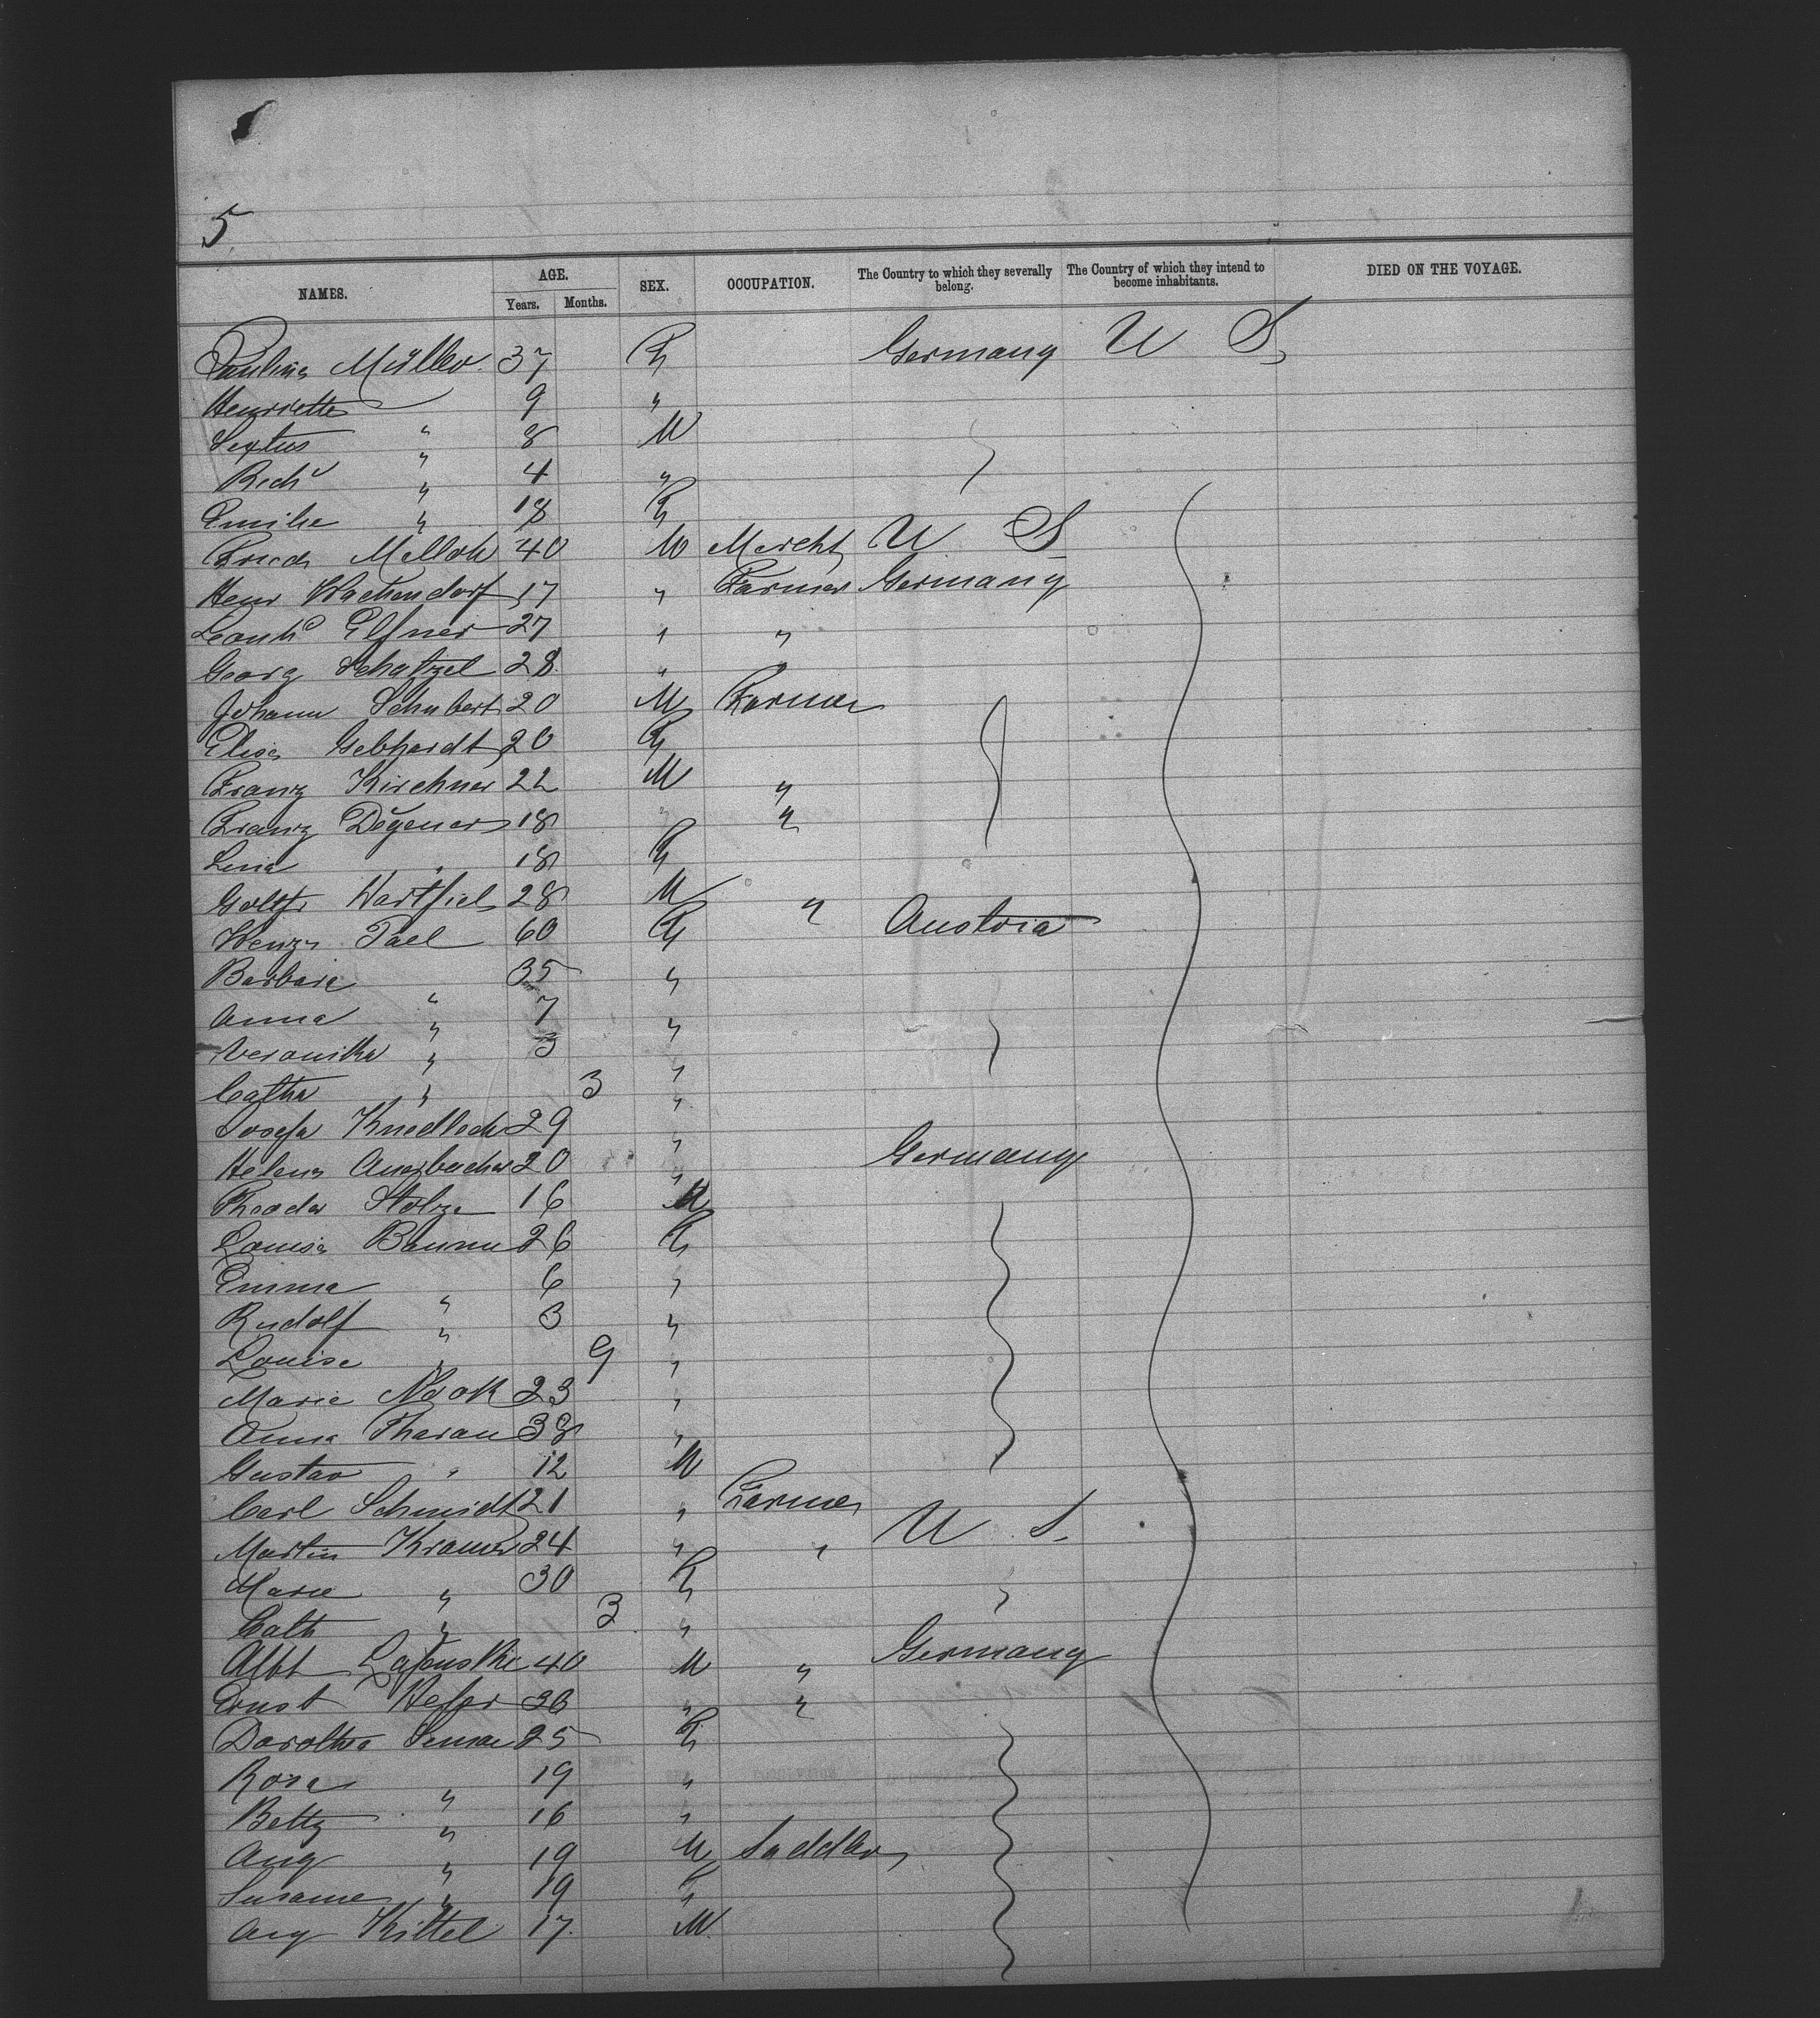 5
NAMES. AGE. Years. Months. SEX. OCCUPATION. The Country to which they severally belong. The Country of which they intend to become inhabitants. DIED ON THE VOYAGE.
Pauline Müller 37 F Germany U S
Henriette " 9 "
Sextus " 8 M
Richd " 4 "
Emilie " 18 F
Friedr 40 M Mercht U S
Henr Wachendorf 17 " Farmer Germany
Leonhd Elfner 27 " "
Georg Schatzel 28 "
Johann Schubert 20 M Farmer
Elise Gebhardt 20 F
Franz Kirchner 22 M "
Franz Degener 18 " "
Lina " 18 F
Gottfr 28 M "
Wenz Pael 60 F Austria
Barbara " 35 "
Anna " 7 "
Veronika " 3 "
Catha " 3 "
Josefa 29 "
Helene Auerbacher 20 " Germany
Theodor Stolze 16 M
Louise Baumn 26 F
Emma " 6 "
Rudolf " 3 "
Louise " 9 "
Marie Noak 23 "
Anna Tharau 38 "
Gustav " 12 M
Carl Schmidt 21 " Farmer
Martin Kramer 24 " " U S
Marie " 30 F
Cath " 3 "
Albt 40 M " Germany
Ernst 36 " "
Dorothea 25 F
Rosa " 19 "
Betty " 16 "
Aug " 19 M Saddler
Susanne " 19 F
Aug Kittel 17 M